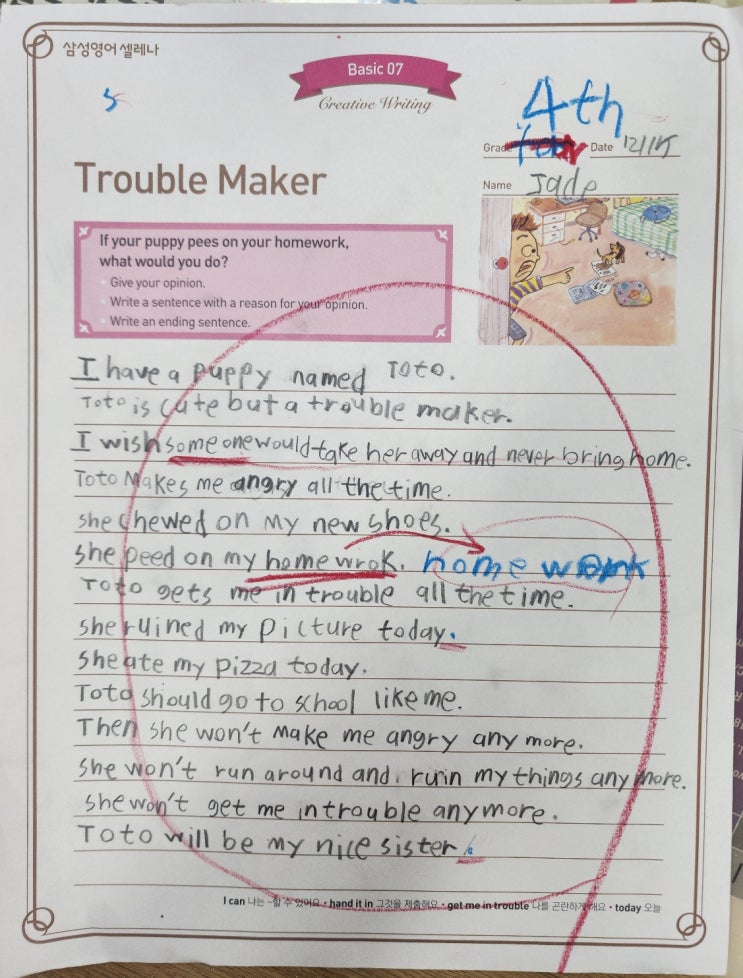 삼성영어 셀레나
Basic 07
Creative Writing
5
4th
Grade Date 12/15
Trouble Maker
Name Jade
If your puppy pees on your homework,
what would you do?
· Give your opinion.
· Write a sentence with a reason for your opinion.
· Write an ending sentence.
I have a puppy named Toto.
Toto is cute but a trouble maker.
I wish some one would take her away and never bring home.
Toto Makes me angry all the time.
she chewed on my new shoes.
she peed on my home wrok. home work
Toto gets me in trouble all the time.
she ruined my picture today.
She ate my pizza today.
Toto should go to school like me.
Then she won't make me angry any more.
she won't run around and ruin my things any more.
she won't get me in trouble any more.
Toto will be my nice sister.
I can 나는 ~할 수 있어요 • hand it in 그것을 제출해요 • get me in trouble 나를 곤란하게 해요 • today 오늘